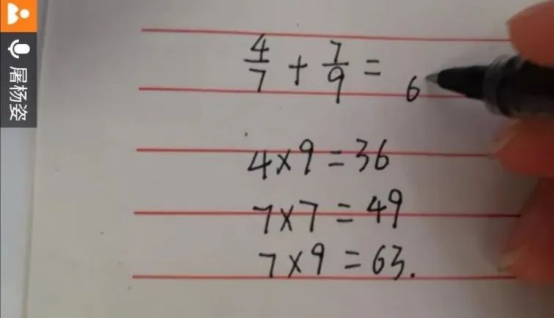 屠杨姿
4/7 + 7/9 = 6
4×9=36
7×7=49
7×9=63.